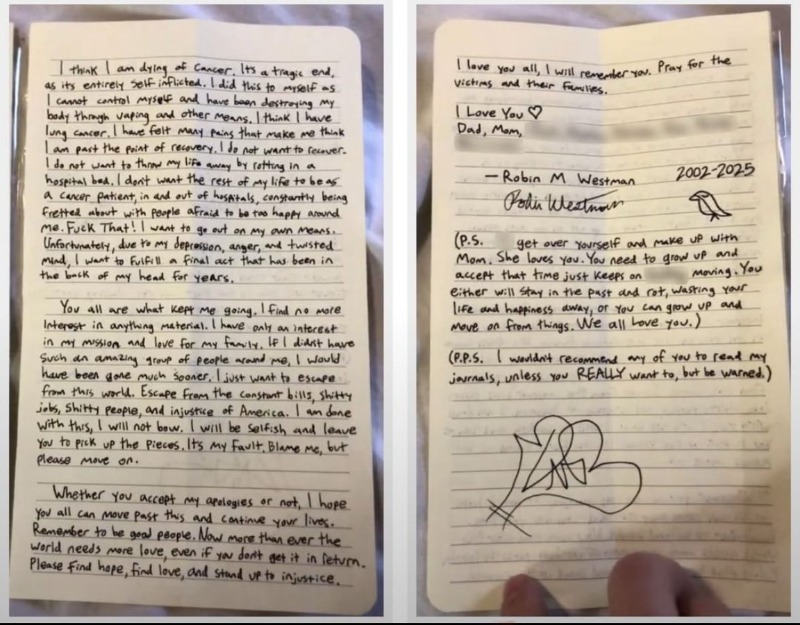 I think I am dying of cancer. Its a tragic end,
as its entirely self inflicted. I did this to myself as
I cannot control myself and have been destroying my
body through vaping and other means. I think I have
lung cancer. I have felt many pains that make me think
I am past the point of recovery. I do not want to recover.
I do not want to throw my life away by rotting in a
hospital bed. I dont want the rest of my life to be as
a cancer patient, in and out of hospitals, constantly being
fretted about with people afraid to be too happy around
me. Fuck That! I want to go out on my own means.
Unfortunately, due to my depression, anger, and twisted
mind, I want to fulfill a final act that has been in
the back of my head for years.
You all are what kept me going. I find no more
interest in anything material. I have only an interest
in my mission and love for my family. If I didnt have
such an amazing group of people around me, I would
have been gone much sooner. I just want to escape
from this world. Escape from the constant bills, shitty
jobs, shitty people, and injustice of America. I am done
with this, I will not bow. I will be selfish and leave
you to pick up the pieces. Its my fault. Blame me, but
please move on.
Whether you accept my apologies or not, I hope
you all can move past this and continue your lives.
Remember to be good people. Now more than ever the
world needs more love, even if you dont get it in return.
Please find hope, find love, and stand up to injustice.
I love you all, I will remember you. Pray for the
victims and their families.
I Love You ♡
Dad, Mom,
— Robin M Westman 2002-2025
Robin Westman
(P.S. get over yourself and make up with
Mom. She loves you. You need to grow up and
accept that time just keeps on moving. You
either will stay in the past and rot, wasting your
life and happiness away, or you can grow up and
move on from things. We all love you.)
(P.P.S. I wouldnt recommend any of you to read my
journals, unless you REALLY want to, but be warned.)